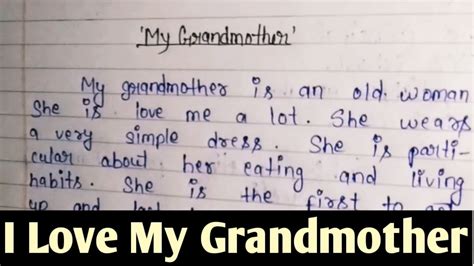 'My Grandmother'
My grandmother is an old woman
She is love me a lot. She wears
a very simple dress. She is parti-
cular about her eating and living
habits. She is the first to
up and
I Love My Grandmother